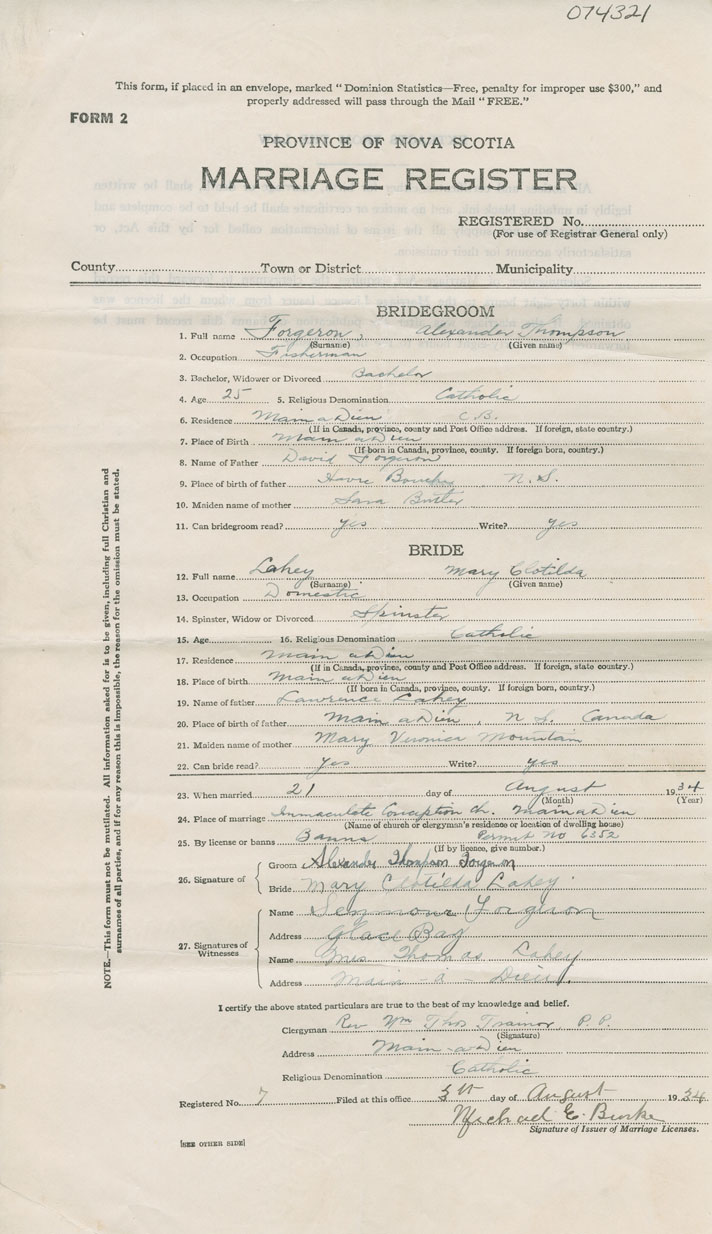 074321
This form, if placed in an envelope, marked "Dominion Statistics—Free, penalty for improper use $300," and
properly addressed will pass through the Mail "FREE."
FORM 2
PROVINCE OF NOVA SCOTIA
MARRIAGE REGISTER
REGISTERED No.
(For use of Registrar General only)
County Town or District Municipality
BRIDEGROOM
1. Full name Forgeron, Alexander Thompson
(Surname) (Given name)
2. Occupation Fisherman
3. Bachelor, Widower or Divorced Bachelor
4. Age 25 5. Religious Denomination Catholic
6. Residence Main a Dieu C.B.
(If in Canada, province, county and Post Office address. If foreign, state country.)
7. Place of Birth Main a Dieu
(If born in Canada, province, county. If foreign born, country.)
8. Name of Father David Forgeron
9. Place of birth of father Havre Boucher N.S.
10. Maiden name of mother Sara Butler
11. Can bridegroom read? yes Write? yes
BRIDE
12. Full name Lahey Mary Clotilda
(Surname) (Given name)
13. Occupation Domestic
14. Spinster, Widow or Divorced Spinster
15. Age 16. Religious Denomination Catholic
17. Residence Main a Dieu
(If in Canada, province, county and Post Office address. If foreign, state country.)
18. Place of birth Main a Dieu
(If born in Canada, province, county. If foreign born, country.)
19. Name of father Lawrence Lahey
20. Place of birth of father Main a Dieu, N S. Canada
21. Maiden name of mother Mary Veronica Mountain
22. Can bride read? yes Write? yes
23. When married 21 day of August 1934
(Month) (Year)
24. Place of marriage Immaculate Conception Ch. Main a Dieu
(Name of church or clergyman's residence or location of dwelling house)
25. By license or banns Banns Permit No 6352
(If by licence, give number.)
26. Signature of
Groom Alexander Thompson Forgeron
Bride Mary Clotilda Lahey
27. Signatures of Witnesses
Name Forgeron
Address Glace Bay
Name Mrs Thomas Lahey
Address Main-à-Dieu
I certify the above stated particulars are true to the best of my knowledge and belief.
Clergyman Rev Wm Thos Trainor P.P.
(Signature)
Address Main-a-Dieu
Religious Denomination Catholic
Registered No. 7 Filed at this office day of August 1934
Michael E. Burke
Signature of Issuer of Marriage Licenses.
[SEE OTHER SIDE]
NOTE.—This form must not be mutilated. All information asked for is to be given, including full Christian and
surnames of all parties, and if for any reason this is impossible, the reason for the omission must be stated.